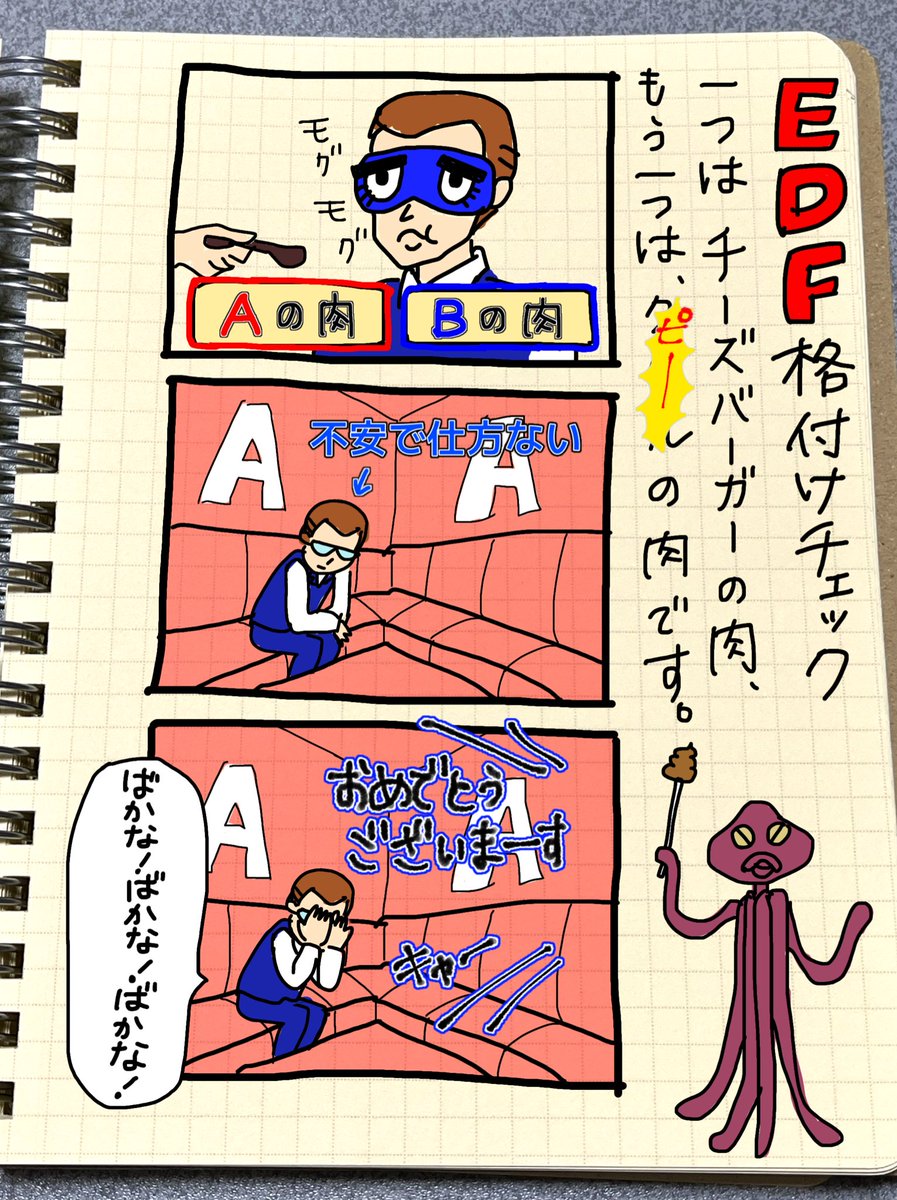 EDF格付けチェック
一つは チーズバーガーの肉、
もう一つは、クピールの肉です。
モグ
モグ
Aの肉
Bの肉
A
A
不安で仕方ない
↓
A
A
おめでとう
ございまーす
キャー
ばかな!ばかな!ばかな!